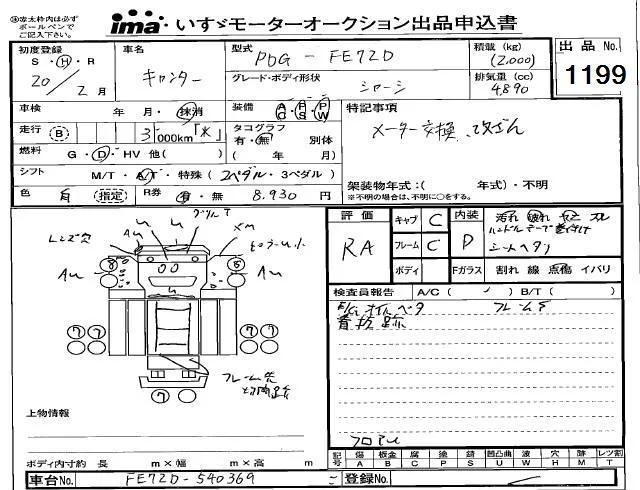 ㊟赤太枠内は必ず
ボールペンで
ご記入下さい。
ima いすゞモーターオークション出品申込書
初度登録
S・H・R
20 / 2 月
車名
キャンター
型式
PDG-FE72D
グレード・ボディ形状
シャーシ
積載 (kg)
(2,000)
排気量 (cc)
4,890
出品 No.
1199
車検
年 月・抹消
走行 B 3,000km「*」
燃料 G・D・HV 他( )
シフト M/T・A/T・特殊(2ペダル・3ペダル)
色 白 指定 R券 有・無 8,930 円
装備 AC・PS・PW
タコグラフ
有・無 別体
( 年 月)
特記事項
メーター交換、改ざん
架装物年式:( 年式)・不明
※不明の場合は、不明に○をする。
評価
RA
キャブ C
フレーム C
ボディ
内装 D
汚れ 破れ ヤニ スレ
シートヘタリ
Fガラス 割れ 線 点傷 イバリ
検査員報告 A/C( ) B/T( )
E/Gオイルベタ フレームサ
着板跡
フロアU
Lレンズ欠
AU
U
U
XM
AU
U
8
8
7 7
7 7
7
フレーム先
切断跡
上物情報
ボディ内寸約 長 m×幅 m×高 m
記号 傷A 板金B 腐C 塗P 錆S 凹凸曲U 波W 穴H 跡M レンズ割T
車台No. FE72D-540369
登録No.